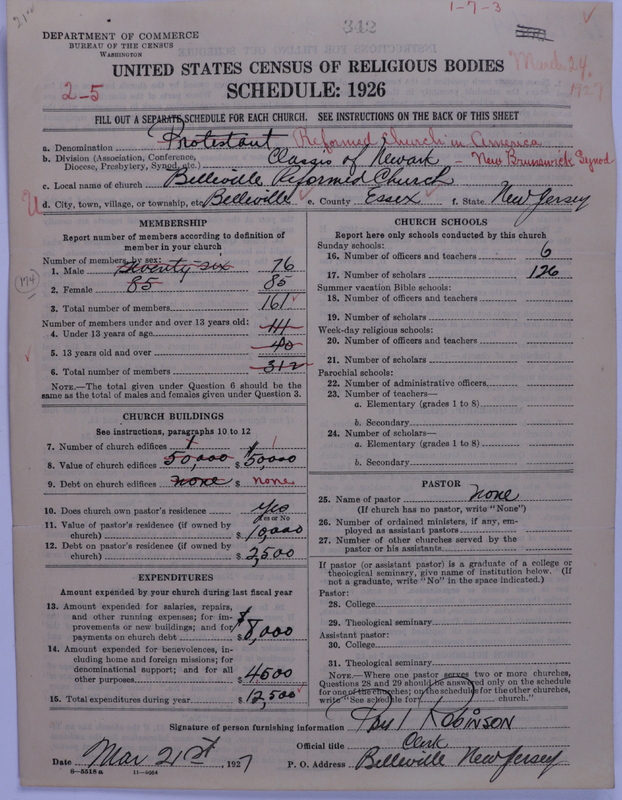 342
1-7-3
DEPARTMENT OF COMMERCE
BUREAU OF THE CENSUS
WASHINGTON
UNITED STATES CENSUS OF RELIGIOUS BODIES
March 24, 1927
2-5
SCHEDULE: 1926
FILL OUT A SEPARATE SCHEDULE FOR EACH CHURCH. SEE INSTRUCTIONS ON THE BACK OF THIS SHEET
a. Denomination Protestant Reformed Church in America
b. Division (Association, Conference, Diocese, Presbytery, Synod, etc.) Classis of Newark - New Brunswick Synod
c. Local name of church Belleville Reformed Church
d. City, town, village, or township, etc. Belleville e. County Essex f. State New Jersey
MEMBERSHIP
Report number of members according to definition of
member in your church
Number of members by sex:
1. Male seventy six 76
2. Female 85 85
3. Total number of members 161
Number of members under and over 13 years old:
4. Under 13 years of age
5. 13 years old and over 40
6. Total number of members 312
NOTE.—The total given under Question 6 should be the
same as the total of males and females given under Question 3.
CHURCH BUILDINGS
See instructions, paragraphs 10 to 12
7. Number of church edifices 1 1
8. Value of church edifices 50,000 $ 50,000
9. Debt on church edifices none $ none
10. Does church own pastor's residence yes
Yes or No
11. Value of pastor's residence (if owned by
church) $ 10,000
12. Debt on pastor's residence (if owned by
church) $ 2,500
EXPENDITURES
Amount expended by your church during last fiscal year
13. Amount expended for salaries, repairs,
and other running expenses; for im-
provements or new buildings; and for
payments on church debt $ 8,000
14. Amount expended for benevolences, in-
cluding home and foreign missions; for
denominational support; and for all
other purposes $ 4500
15. Total expenditures during year $ 12,500
CHURCH SCHOOLS
Report here only schools conducted by this church
Sunday schools:
16. Number of officers and teachers 6
17. Number of scholars 126
Summer vacation Bible schools:
18. Number of officers and teachers
19. Number of scholars
Week-day religious schools:
20. Number of officers and teachers
21. Number of scholars
Parochial schools:
22. Number of administrative officers
23. Number of teachers—
a. Elementary (grades 1 to 8)
b. Secondary
24. Number of scholars—
a. Elementary (grades 1 to 8)
b. Secondary
PASTOR
25. Name of pastor none
(If church has no pastor, write "None")
26. Number of ordained ministers, if any, em-
ployed as assistant pastors
27. Number of other churches served by the
pastor or his assistants
If pastor (or assistant pastor) is a graduate of a college or
theological seminary, give name of institution below. (If
not a graduate, write "No" in the space indicated.)
Pastor:
28. College
29. Theological seminary
Assistant pastor:
30. College
31. Theological seminary
NOTE.—Where one pastor serves two or more churches,
Questions 28 and 29 should be answered only on the schedule
for one of the churches; on the schedules for the other churches,
write "See schedule for church."
Signature of person furnishing information Paul Robinson
Official title Clerk
Date Mar 21st, 1927 P. O. Address Belleville New Jersey
8-5518a 11-9554